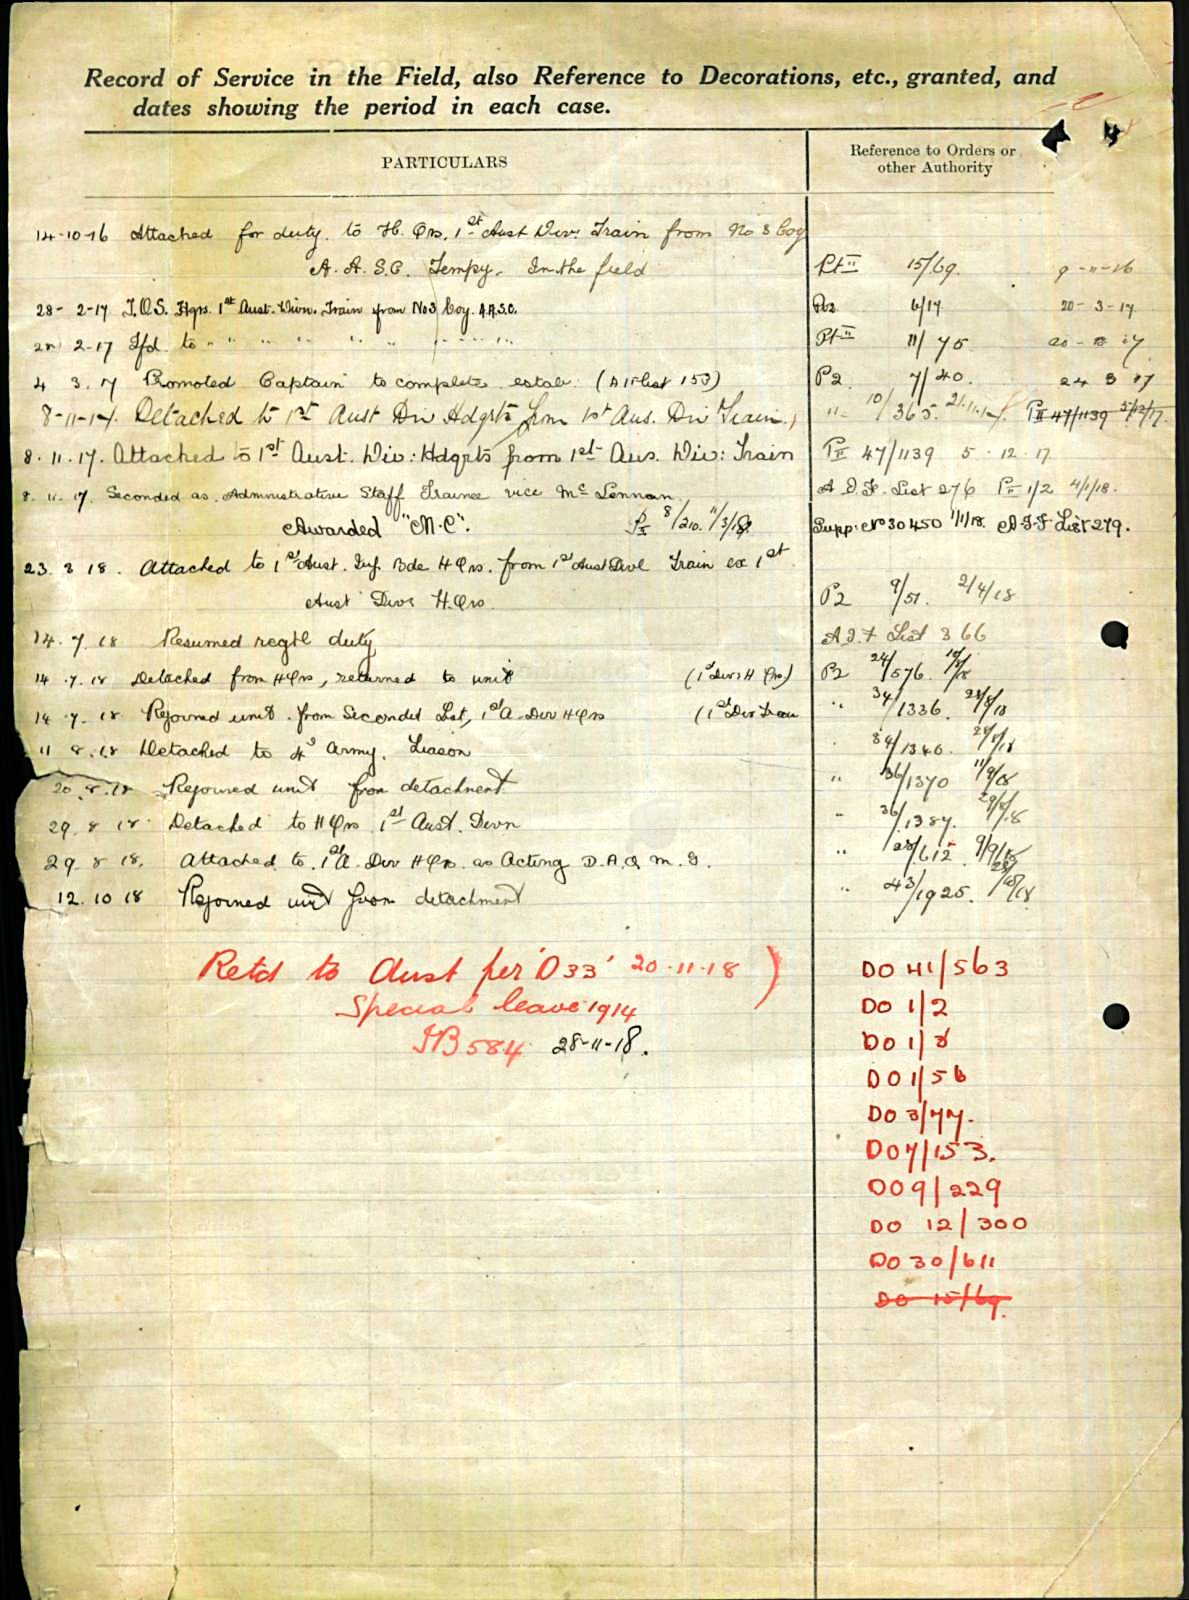 Record of Service in the Field, also Reference to Decorations, etc., granted, and
dates showing the period in each case.
PARTICULARS
Reference to Orders or
other Authority
14-10-16 Attached for duty to H. Qrs. 1st Aust Div. Train from No 3 Coy
A. A. S. C. Tempy. In the field Pt II 15/69. 9-11-16
28-2-17 T.O.S. Hqrs. 1st Aust. Divn. Train from No 3 Coy. A.A.S.C. Po2 6/17 20-3-17
2-17 Tfd to " " " " " " " " Pt II 11/75
4 3.17 Promoted Captain to complete estab. (A I F List 153) P2. 7/40. 24 3 17
8-11-17. Detached to 1st Aust Div Hdqrts from 1st Aus. Div Train. " 10/365. 21.11.17. PII 47/1139 5/12/17.
8.11.17. Attached to 1st Aust. Div: Hdqrts from 1st Aus. Div: Train PII 47/1139 5.12.17
8.11.17. Seconded as Administrative Staff Trainee vice Mc Lennan. A.I.F. List 276 PII 1/2 4/1/18.
Awarded "M.C". PII 8/210. 11/3/18. Supp: No 30450 1/1/18. A.I.F List 279.
23.3 18. Attached to 1st Aust. Inf. Bde H Qrs. from 1st Aust Divl Train ex 1st
Aust Divs H.Qrs. P2 9/51. 2/4/18
14.7.18 Resumed regtl duty A.I.F List 366
14.7.18 Detached from H Qrs, returned to unit (1st Divs H Qrs) P2 24/576.
14.7.18 Rejoined unit from Seconded List, 1st A. Div H Qrs (1st Div Train " 34/1336.
11 8.18 Detached to 4th Army. Liason 34/1340.
20.8.18 Rejoined unit from detachment " 36/1370 11/9/18
29.8 18 Detached to H Qrs 1st Aust. Divn " 36/1387.
29.8 18. Attached to 1st A. Div H Qrs. as Acting D.A.Q.M.G. " 28/612 9/9/18
12.10 18 Rejoined unit from detachment " 43/1925.
Retd to Aust per 'D33' 20-11-18 )
Special leave 1914
HB 584 28-11-18.
DO 41/563
DO 1/2
DO 1/3
DO 1/56
DO 3/77.
DO 7/153.
DO 9/229
DO 12/300
DO 30/611
DO 15/69.